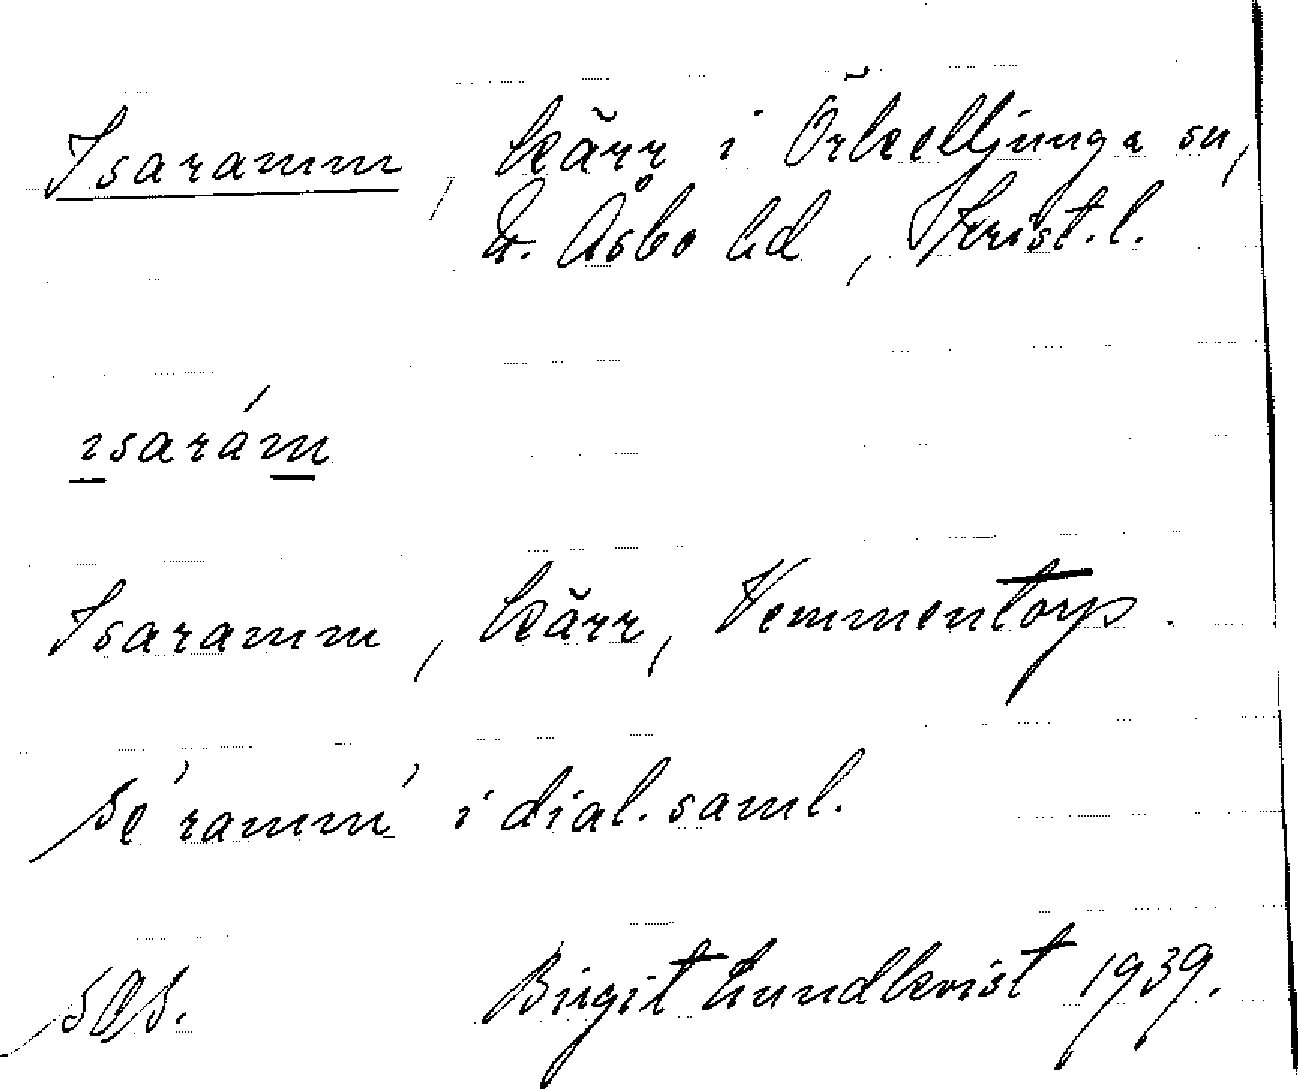 Isaramm, kärr i Örkelljunga sn,
N. Åsbo hd, Krist.l.
ısarám
Isaramm, kärr, Vemmentorp.
Se ´ramm´ i dial.saml.
SOS. Birgit Lundkvist 1939.